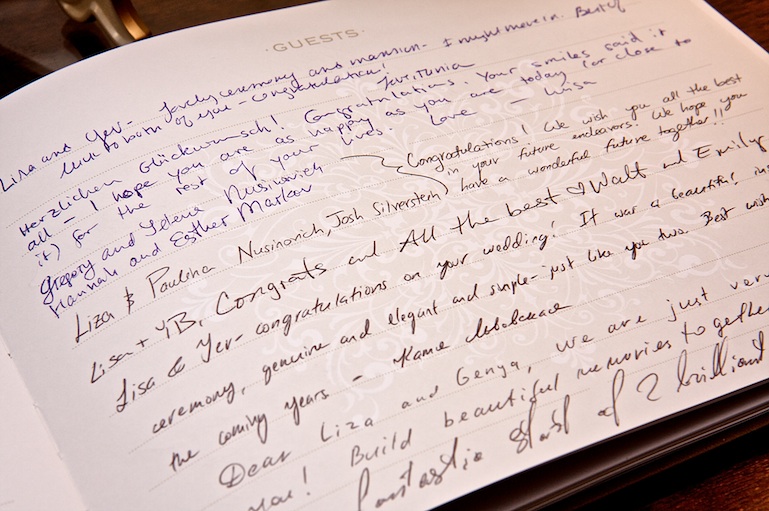 GUESTS
Liza and Yev - lovely ceremony and mansion - I might move in. Best of
luck to both of you - congratulations!
Herzlichen Glückwunsch! Congratulations. Your smiles said it
all - I hope you are as happy as you are today (or close to
it) for the rest of your lives. Love -
Gregory and Yelena Nusinovich
Hannah and Esther Markov
Liza & Paulina Nusinovich, Josh Silverstein
Congratulations! We wish you all the best
in your future endeavors. We hope you
have a wonderful future together!!
Lisa + YB, Congrats and All the best ♡ Walt and Emily
Lisa & Yev - congratulations on your wedding! It was a beautiful
ceremony, genuine and elegant and simple - just like you two. Best
the coming years -
Dear Liza and Genya, we are just very
you! Build beautiful memories together
fantastic start of 2 brilliant